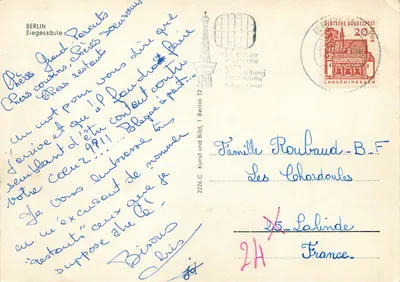 BERLIN
Siegessäule
Chers Grand Parents
Chers cousins, chères
Chers restants
Un mot pour vous dire que
j'pense et qu' I.P. faudra faire
semblant d'être content contre
votre cœur !?!! Blague à part...
Je vous embrasse tous
en m'excusant de nommer
"restants" ceux que je
suppose être là !
Bisous
2226 C Kunst und Bild, 1 Berlin 12
DEUTSCHE BUNDESPOST
20
LORSCH/HESSEN
Famille Roubaud-B-F
Les Chardoules
25 Lalinde
24
France